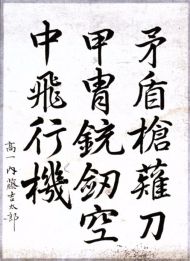 矛盾槍薙刀
甲冑銃剱空
中飛行機
高一内藤吉太郎